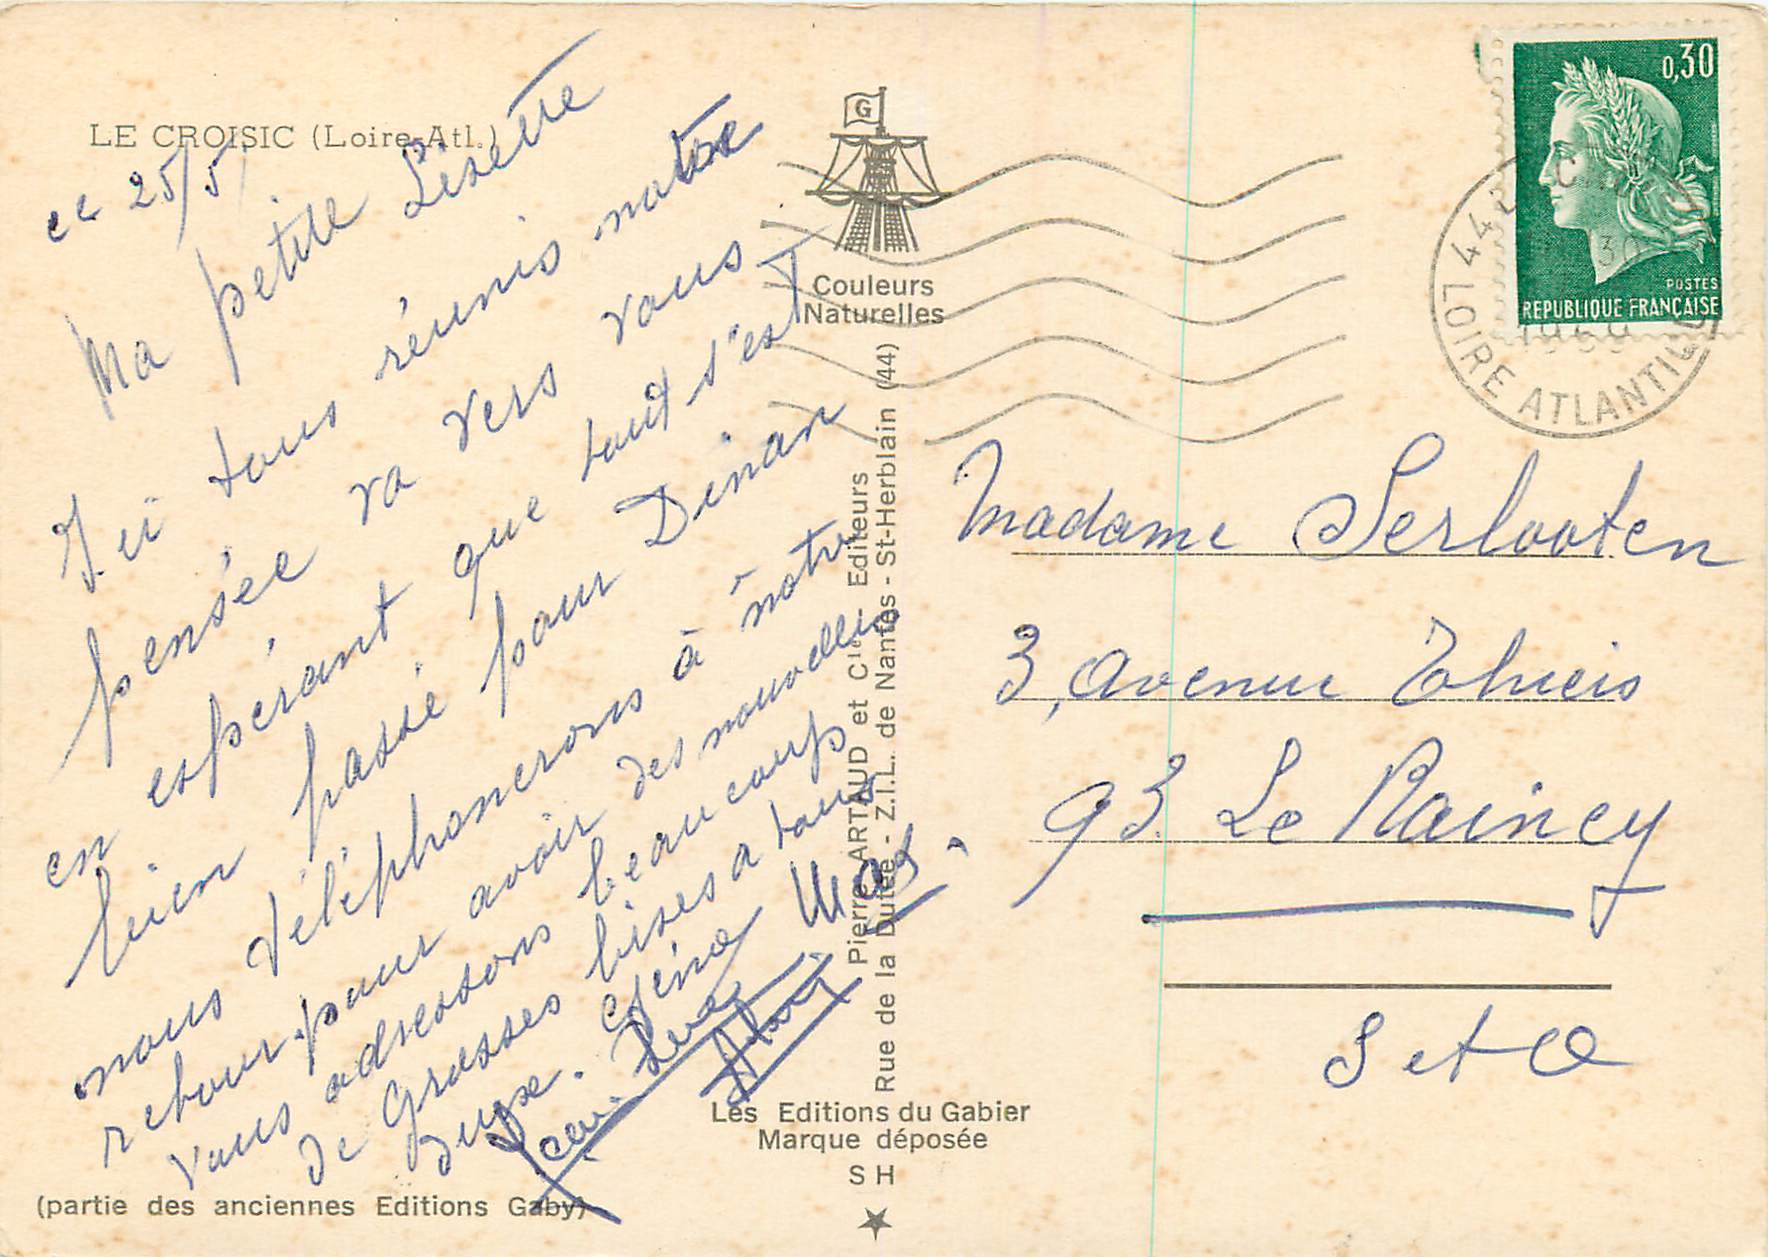 LE CROISIC (Loire-Atl.)
ce 25/5
Ma petite Lisette
Ici tous réunis notre
pensée va vers vous
en espérant que tout s'est
bien passé pour Dinan
nous téléphonerons à notre
retour pour avoir des nouvelles
vous adressons beaucoup
de grosses bises a tous
deux.
G
Couleurs
Naturelles
Pierre ARTAUD et Cie - Editeurs
Rue de la Dutée - Z.I.L. de Nantes - St-Herblain (44)
Les Editions du Gabier
Marque déposée
SH
(partie des anciennes Editions Gaby)
0,30
POSTES
REPUBLIQUE FRANÇAISE
44
30
1969
LOIRE ATLANTIQUE
Madame Serlooten
3, Avenue Thiers
93 Le Raincy
S et O